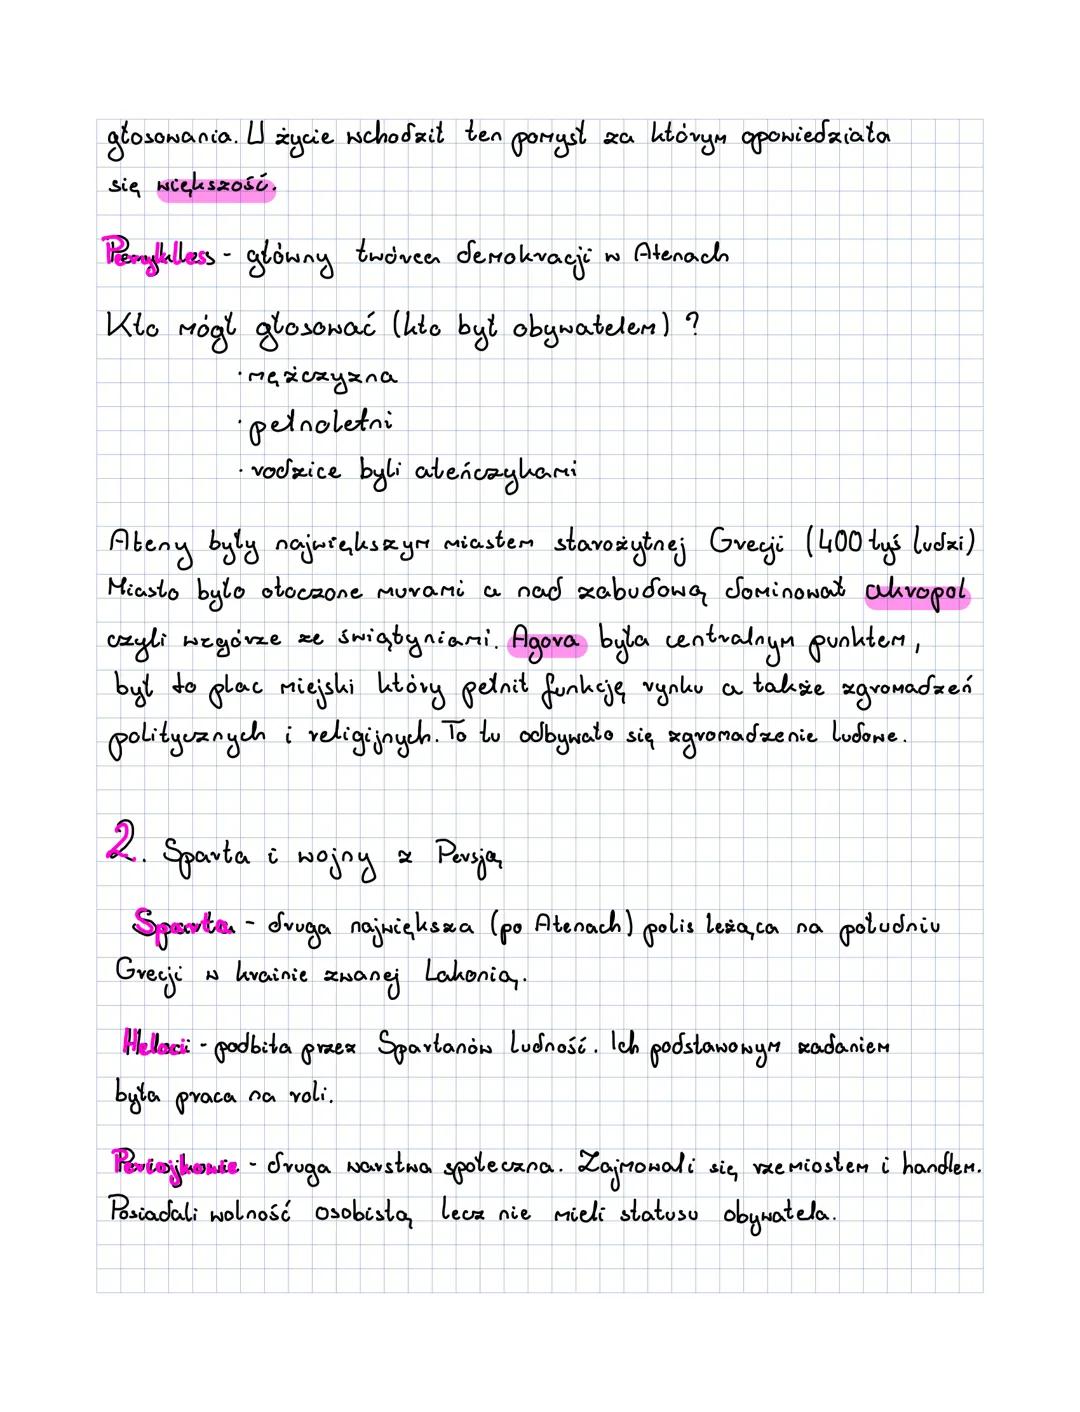 głosowania. W życie wchodził ten pomysł za którym opowiedziała
się większość.
Perykless - główny twórca demokracji w Atenach
Kto mógł głosować (kto był obywatelem) ?
· mężczyzna
· pełnoletni
· rodzice byli ateńczykami
Ateny były największym miastem starożytnej Grecji (400 tyś ludzi)
Miasto było otoczone murami a nad zabudową dominował akropol
czyli wzgórze ze świątyniami. Agora była centralnym punktem,
był to plac miejski który pełnił funkcję rynku a także zgromadzeń
politycznych i religijnych. To tu odbywało się zgromadzenie ludowe.
2. Sparta i wojny z Persją
Sparta - druga największa (po Atenach) polis leżąca na południu
Grecji w krainie zwanej Lakonią.
Heloci - podbita przez Spartanów ludność. Ich podstawowym zadaniem
była praca na roli.
Periojkowie - druga warstwa społeczna. Zajmowali się rzemiosłem i handlem.
Posiadali wolność osobistą lecz nie mieli statusu obywatela.